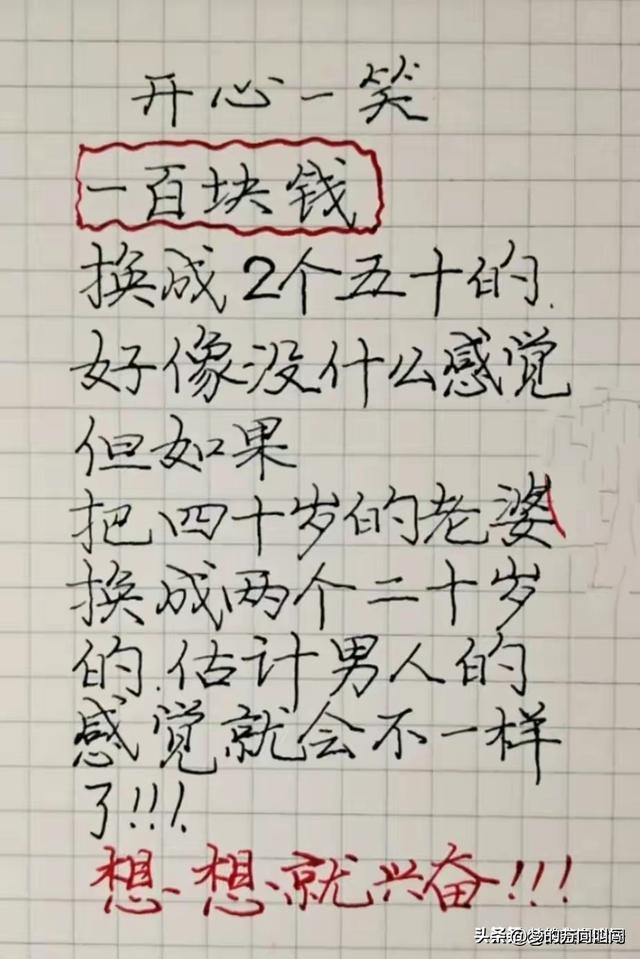 开心一笑
一百块钱
换成2个五十的.
好像没什么感觉
但如果
把四十岁的老婆
换成两个二十岁
的.估计男人的
感觉就会不一样
了!!!
想一想就兴奋!!!